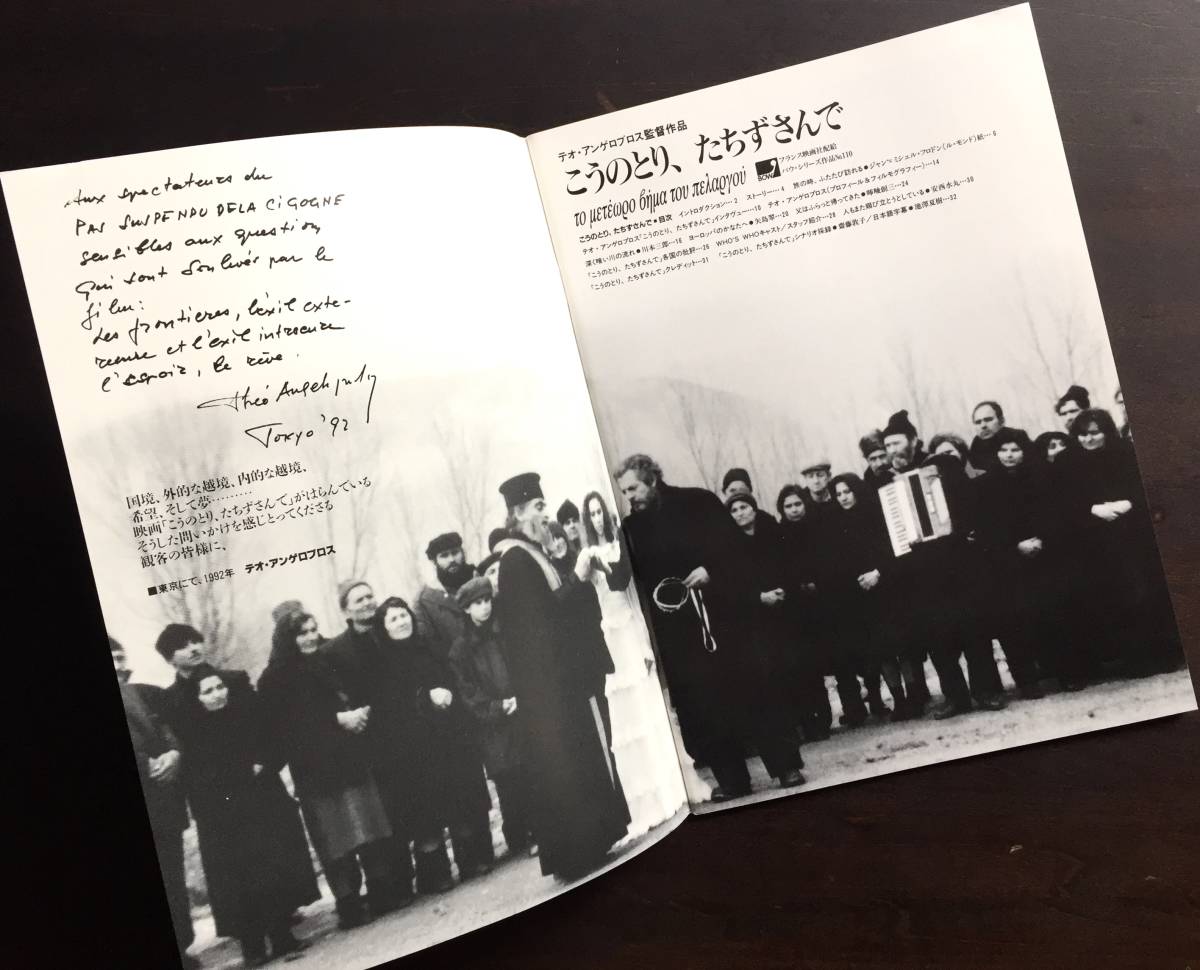 Aux spectateurs du
PAS SUSPENDU DE LA CIGOGNE
sensibles aux question
qui sont soulevés par le
film:
Les frontieres, l'exil exte-
rieure et l'exil interieure
l'espoir, le rêve.
Théo Angelopoulos
Tokyo '92
国境、外的な越境、内的な越境、
希望、そして夢………
映画「こうのとり、たちずさんで」がはらんでいる
そうした問いかけを感じとってくださる
観客の皆様に、
■東京にて、1992年 テオ・アンゲロプロス
テオ・アンゲロプロス監督作品
こうのとり、たちずさんで
το μετέωρο βήμα του πελαργού
BOW
フランス映画社配給
バウ・シリーズ作品No.110
こうのとり、たちずさんで●目次 イントロダクション…2 ストーリー…4 旅の時、ふたたび訪れる●ジャン=ミシェル・フロドン(ル・モンド)紙…6
テオ・アンゲロプロス「こうのとり、たちずさんで」インタヴュー…10 テオ・アンゲロプロス(プロフィール&フィルモグラフィー)…14
深く暗い川の流れ●川本三郎…16 ヨーロッパのかなたへ●矢島翠…20 父はふらっと帰ってきた●暉峻創三…24
「こうのとり、たちずさんで」各国の批評…26 WHO'S WHOキャスト/スタッフ紹介…28 人もまた媚び立とうとしている●安西水丸…30
「こうのとり、たちずさんで」クレディット…31 「こうのとり、たちずさんで」シナリオ採録●齋藤敦子/日本語字幕●池澤夏樹…32